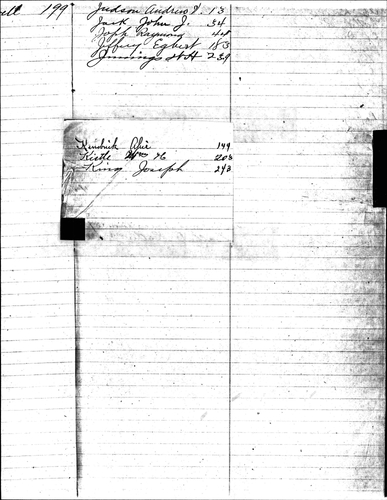 ell 199
Judson Andrew J. 13
Jack John J. 34
Raymond 44
Jeffery Egbert 183
Jennings 239
Kendrick 149
Kietle 203
King Joseph 243